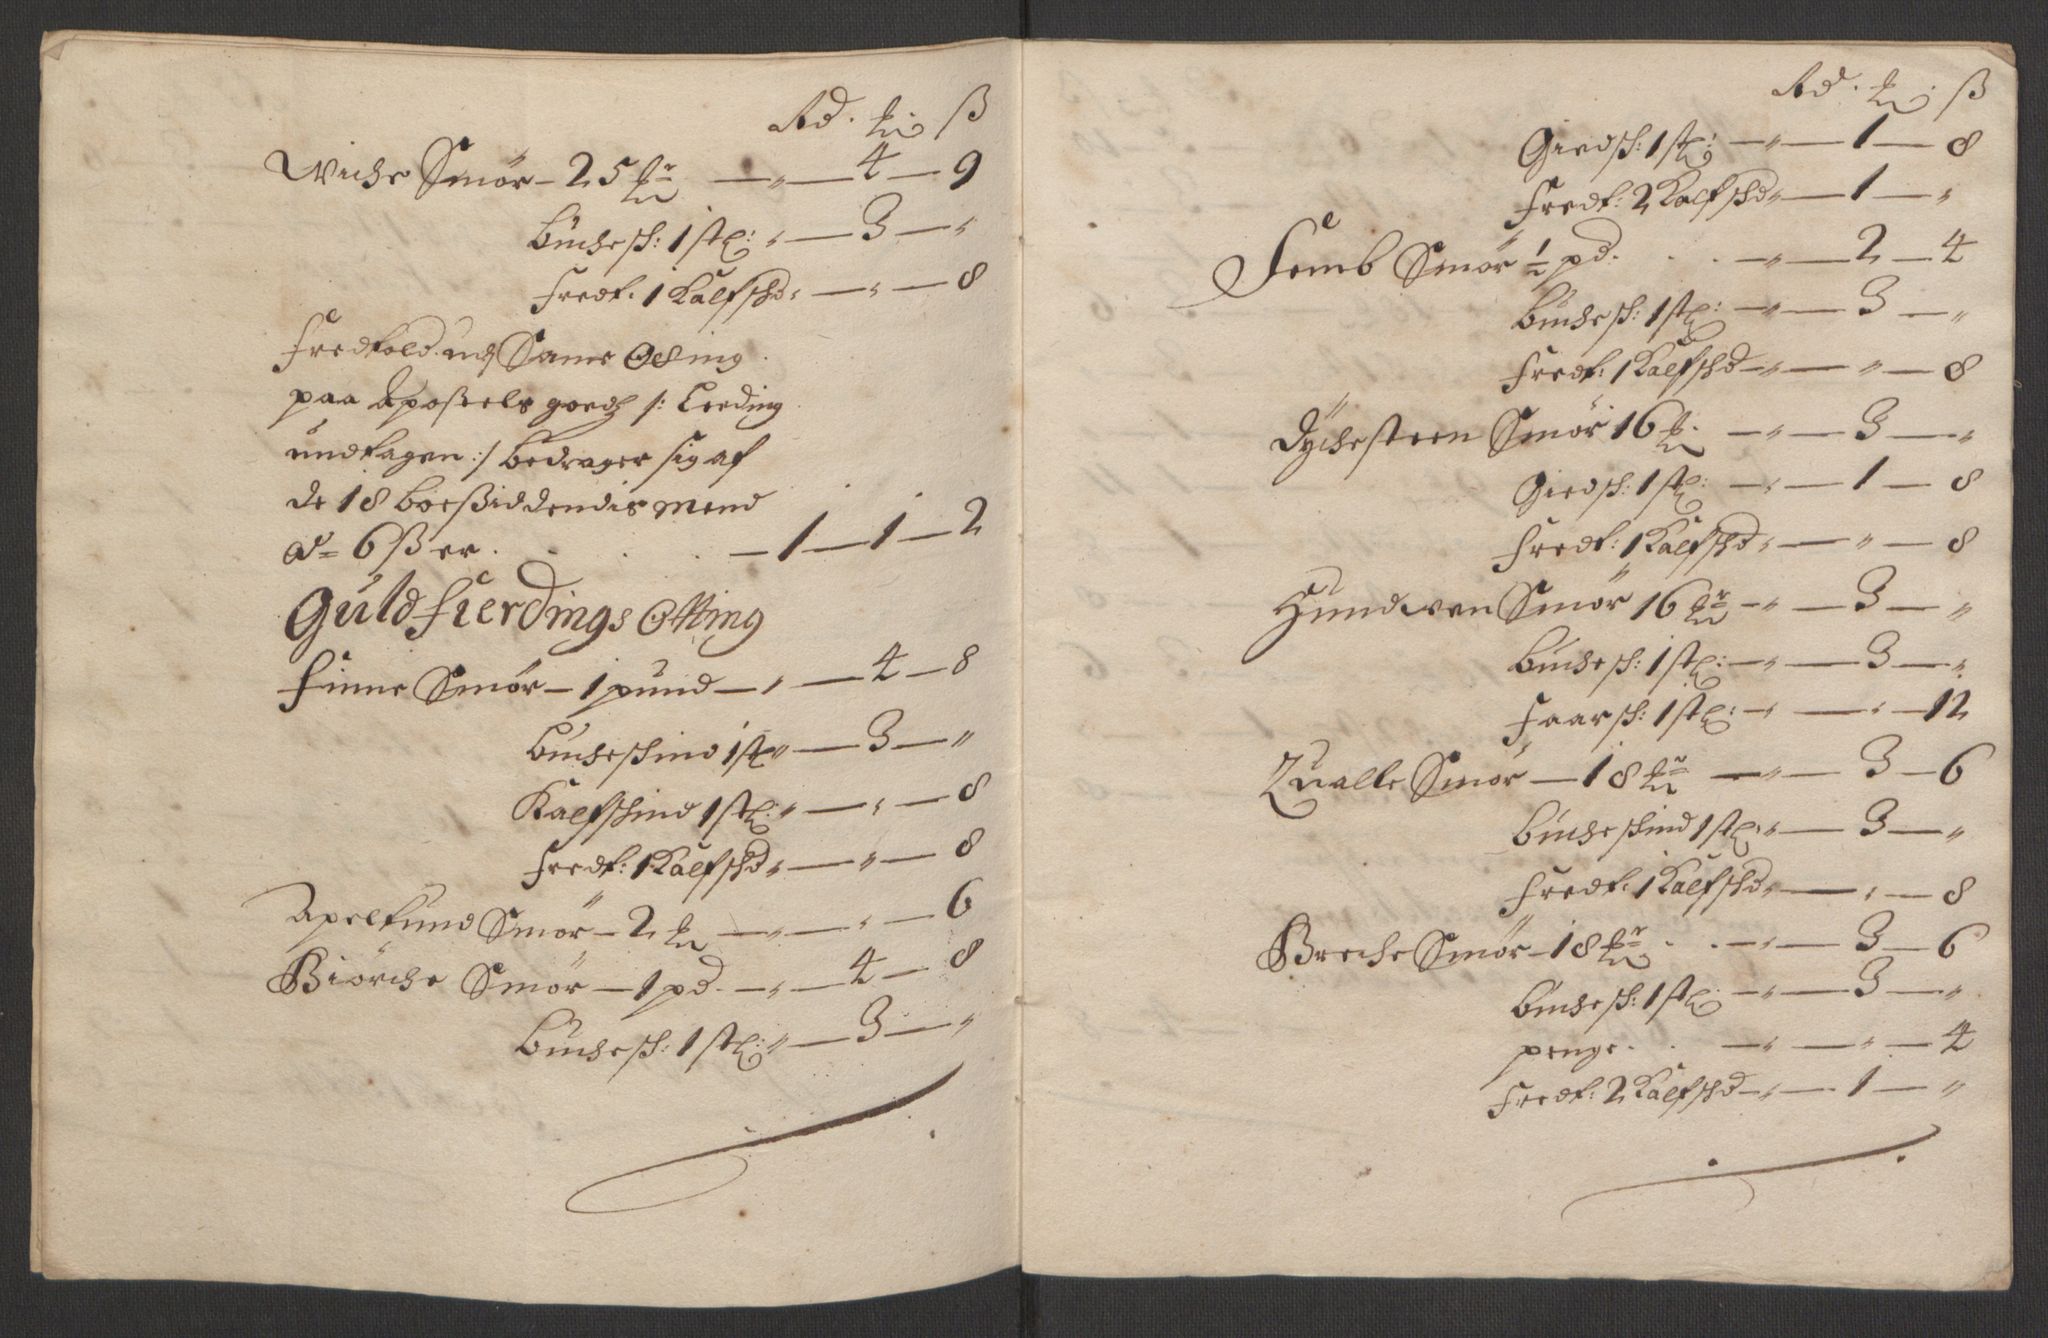 Rd. mk. ß
Wiche Smør – 25 mkr – „ – 4 – 9
buchesk: 1 stk: „ – 3 – „
fredt. 1 Kalfskd „ – „ – 8
fredtold. udj Same Otting
paa Apostels goedz /: Leeding
undtagen :/ bedrager sig af
de 18 boesiddendis mend
a= 6 ß er. . . . – 1 – 1 – 2
Guldfierdings Otting
finne Smør – 1 pund – „ – 4 – 8
bucheskind 1 stk „ – 3 – „
Kalfskind 1 stk: „ – „ – 8
fredt: 1 Kalfskd „ – „ – 8
Apeltund Smør – 2 mk – „ – „ – 6
Biørche Smør – 1 pd. – „ – 4 – 8
buchesk: 1 stk: „ – 3 – „
Rd. mk. ß
Giedsk: 1 stk: – „ – 1 – 8
fredt: 2 Kalfskd „ – 1 – „
Femb Smør ½ pd. . . – „ – 2 – 4
buchesk: 1 stk: – „ – 3 – „
fredt: 1 Kalfskd – „ – „ – 8
Dychesteen Smør 16 mk. – „ – 3 – „
Giedsk: 1 stk: – „ – 1 – 8
fredt: 1 Kalfskd „ – „ – 8
Hundwen Smør 16 mkr – „ – 3 – „
buchesk: 1 stk: – „ – 3 – „
faarsk: 1 stk: – „ – „ – 12
Qualle Smør – 18 mkr – „ – 3 – 6
bucheskind 1 stk: „ – 3 – „
fredt. 1 Kalfskd „ – „ – 8
Breche Smør – 18 mkr . . – „ – 3 – 6
buchesk: 1 stk: – „ – 3 – „
penge. . – „ – „ – 4
fredt: 2 Kalfskd – „ – 1 – „